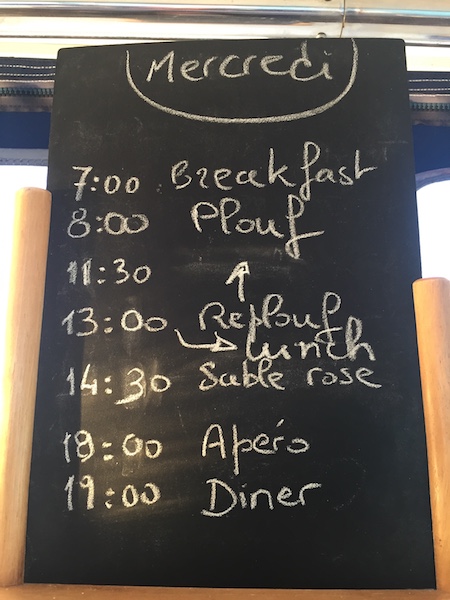 Mercredi
7:00 Breakfast
8:00 Plouf
11:30
13:00 Replouf
Lunch
14:30 Sable rose
18:00 Apéro
19:00 Diner